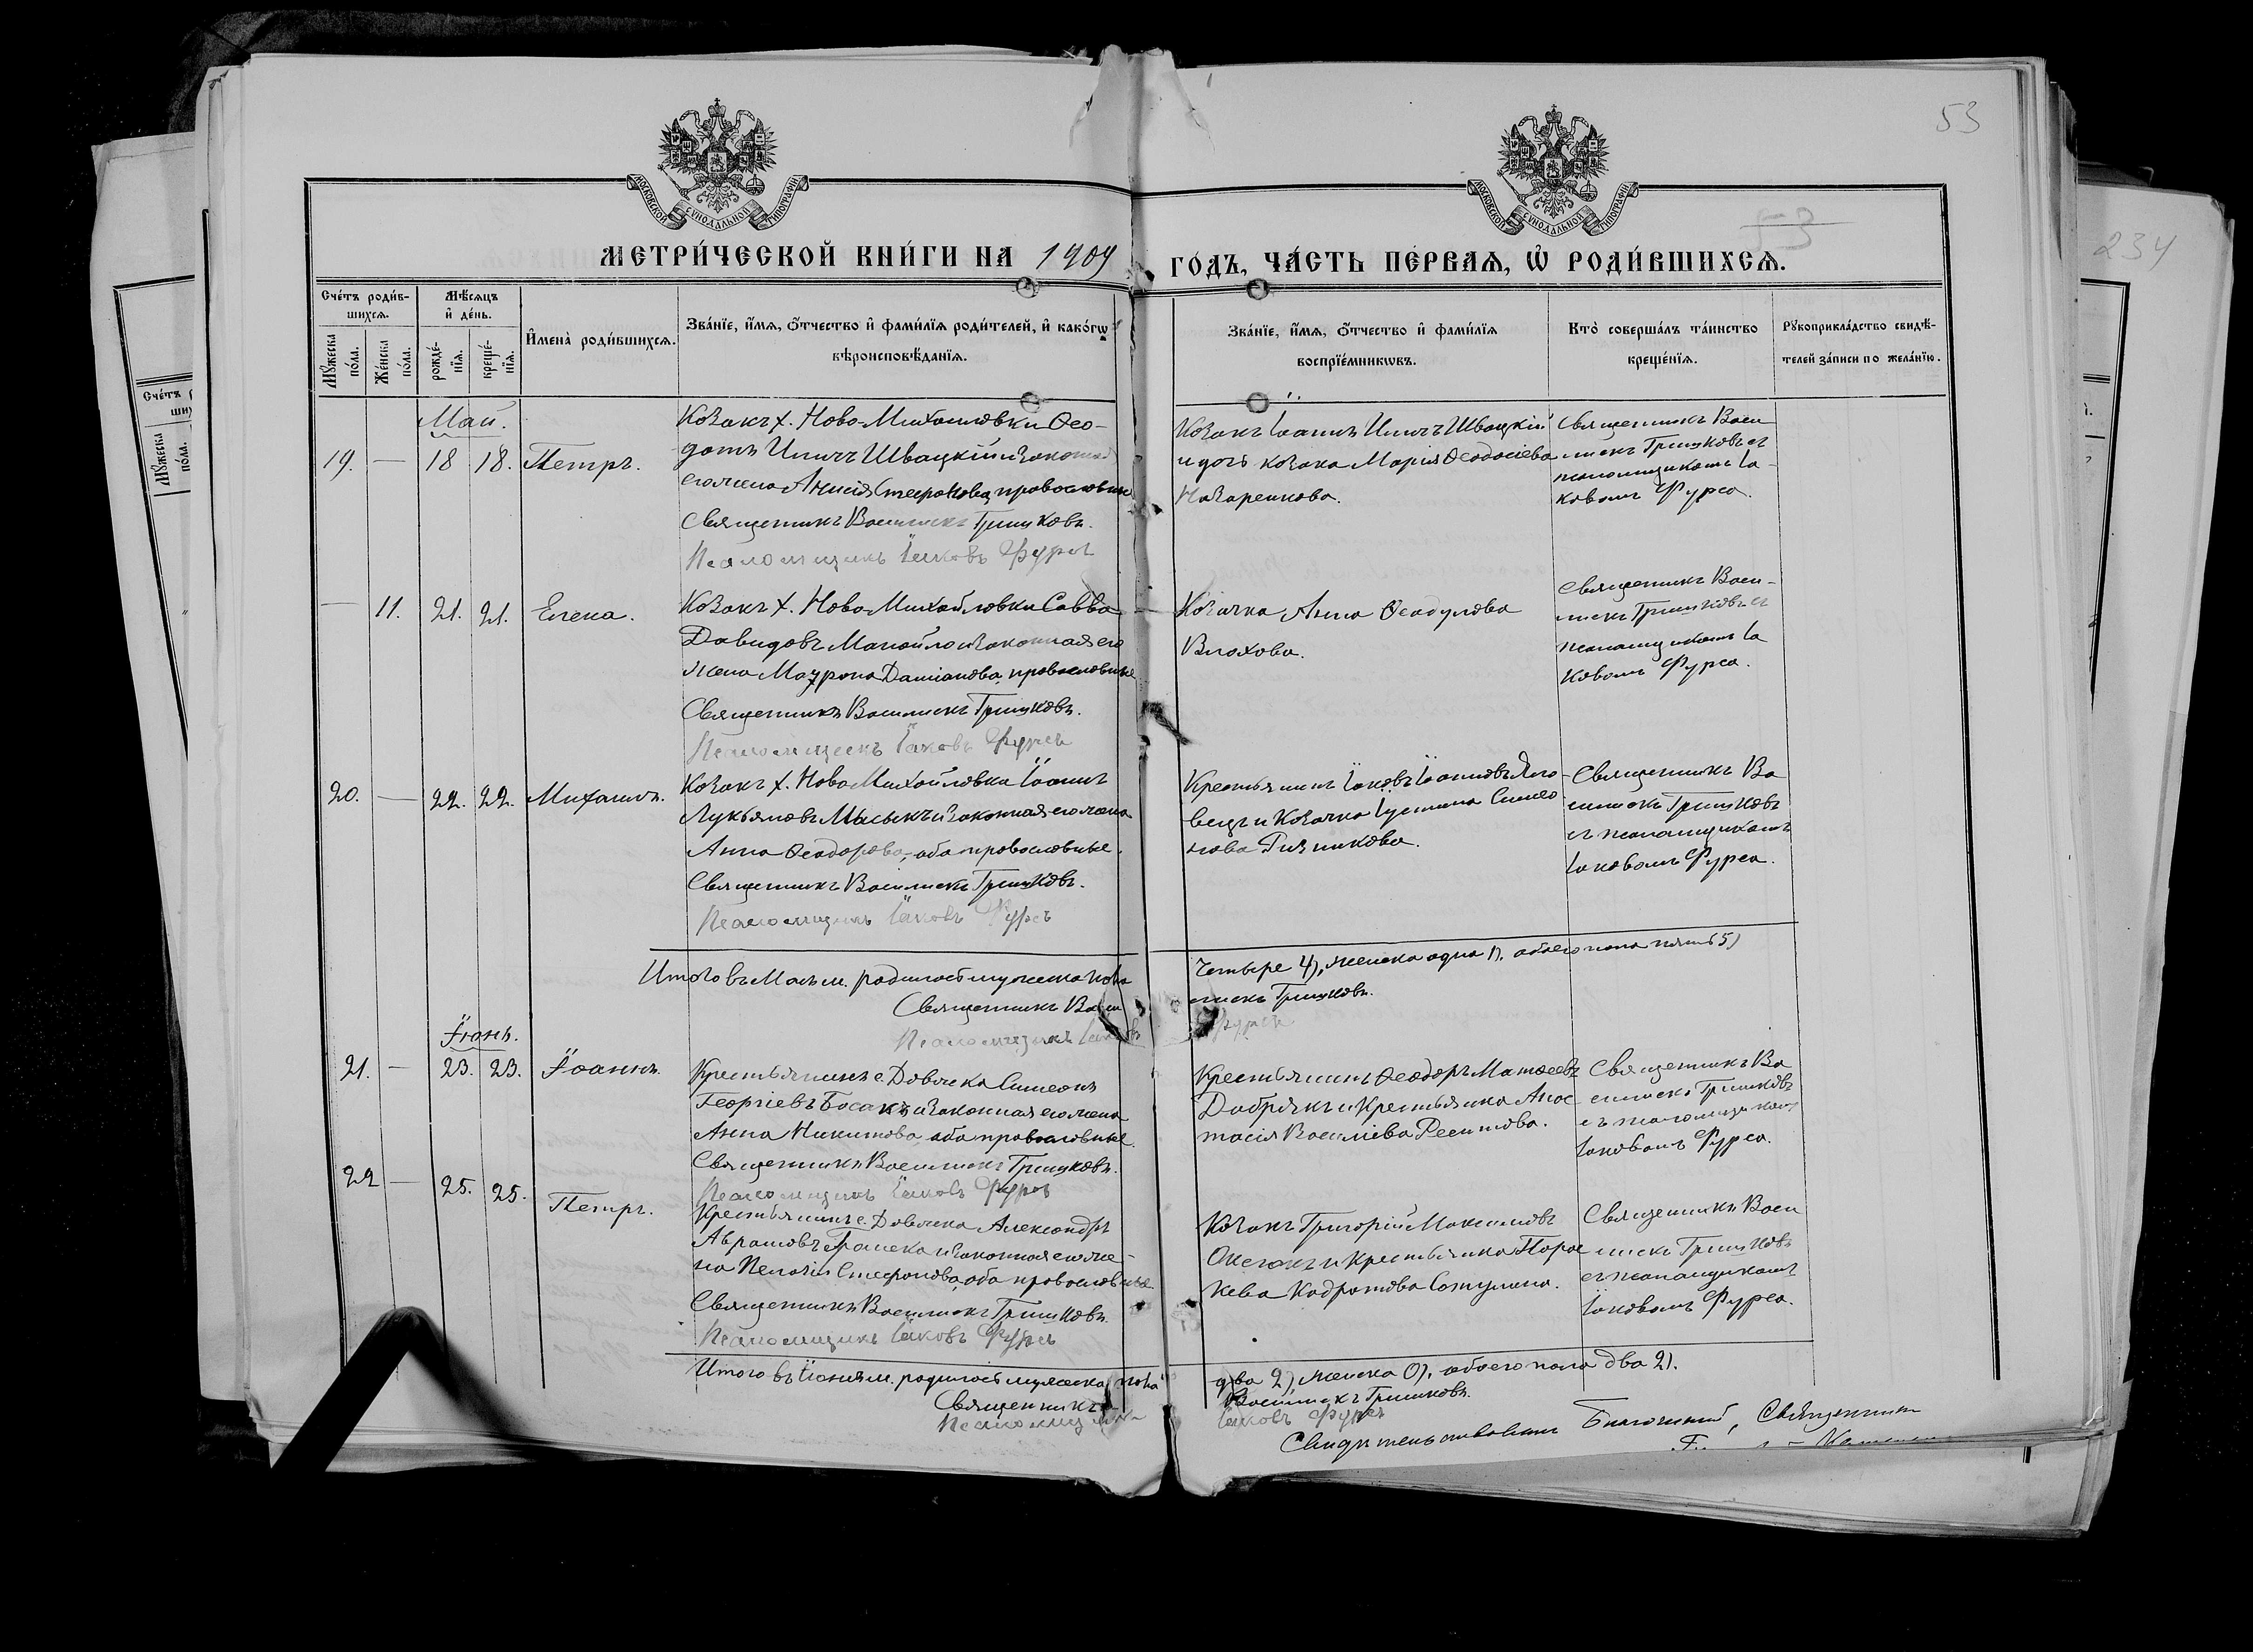 53
МОСКОВСКОЙ СѴНОДАЛЬНОЙ ТИПОГРАФІИ
МОСКОВСКОЙ СѴНОДАЛЬНОЙ ТИПОГРАФІИ
МЕТРИ́ЧЕСКОЙ КНИ́ГИ НА 1909
ГО́ДЪ, ЧА́СТЬ ПЕ́РВАЯ, Ѡ҆ РОДИ́ВШИХСЯ.
234
Сче́тъ роди́в-
шихся.
Мѣ́сяцъ
и҆ де́нь.
Мꙋ́жеска по́ла.
Же́нска по́ла.
рожде́-
нїя.
креще́-
нїя.
И҆мена̀ роди́вшихся.
Зва́нїе, и҆́мя, ѻ҆́тчество и҆ фами́лїя роди́телей, и҆ како́гѡ
вѣроисповѣ́данїя.
Зва́нїе, и҆́мя, ѻ҆́тчество и҆ фами́лїя
воспрїе́мникѡвъ.
Кто̀ соверша́лъ та́инство
креще́нїя.
Рꙋкоприкла́дство свидѣ́-
телей за́писи по жела́нїю.
Май.
19. — 18 18. Петръ.
Козакъ х. Ново-Михайловки Ѳео-
дотъ Иличъ Швацкій и законная
его жена Анисія Стефанова, православные
Священникъ Василискъ Гришковъ.
Псаломщикъ Іаковъ Фурса
Козакъ Іоаннъ Иличъ Швацкій
и дочь козака Марія Ѳеодосіева
Назаренкова.
Священникъ Васи
лискъ Гришковъ съ
псаломщикомъ Іа-
ковомъ Фурса.
— 11. 21. 21. Елена.
Козакъ х. Ново-Михайловки Савва
Давидовъ Манойло и законная его
жена Маѵрона Даміанова, православные
Священникъ Василискъ Гришковъ.
Псаломщикъ Іаковъ Фурса
Козачка Анна Ѳеодулова
Влохова.
Священникъ Васи-
лискъ Гришковъ съ
псаломщикомъ Іа
ковомъ Фурса.
20. — 22. 22. Михаилъ.
Козакъ х. Ново Михайловки Іоаннъ
Лукьяновъ Масыкъ и законная его жена
Анна Ѳеодорова, оба православные.
Священникъ Василискъ Гришковъ.
Псаломщикъ Іаковъ Фурса
Крестьянинъ Іаковъ Іоанновъ Яло-
вецъ и козачка Іустина Симео
нова Ризникова.
Священникъ Ва
силискъ Гришковъ
съ псаломщикомъ
Іаковомъ Фурса.
Итого въ Маѣ м. родилось мужеска пола
четыре 4), женска одна 1). обоего пола пять 5)
Священникъ Васи
лискъ Гришковъ.
Псаломщикъ Іаковъ
Фурса
Іюнь.
21. — 23. 23. Іоаннъ.
Крестьянинъ с. Довжка Симеонъ
Георгіевъ Босакъ и законная его жена
Анна Никитова, оба православные.
Священникъ Василискъ Гришковъ.
Псаломщикъ Іаковъ Фурса
Крестьянинъ Ѳеодоръ Матѳеевъ
Добрякъ и крестьянка Анас
тасія Василіева
Священникъ Ва
силискъ Гришковъ
съ псаломщикомъ
Іаковомъ Фурса.
22 — 25. 25. Петръ.
Крестьянинъ с. Довжка Александръ
Аврамовъ и законная его же-
на Пелагія Стефанова, оба православные
Священникъ Василискъ Гришковъ.
Псаломщикъ Іаковъ Фурса
Козакъ Григорій Максимовъ
и крестьянка Парас
кева Кодратова
Священникъ Васи
лискъ Гришковъ
съ псаломщикомъ
Іаковомъ Фурса.
Итого въ Іюнѣ м. родилось мужеска пола
два 2), женска 0), обоего пола два 2).
Священникъ
Василискъ Гришковъ.
Псаломщикъ
Іаковъ Фурса
Свидѣтельствовалъ Благочинный, Священникъ